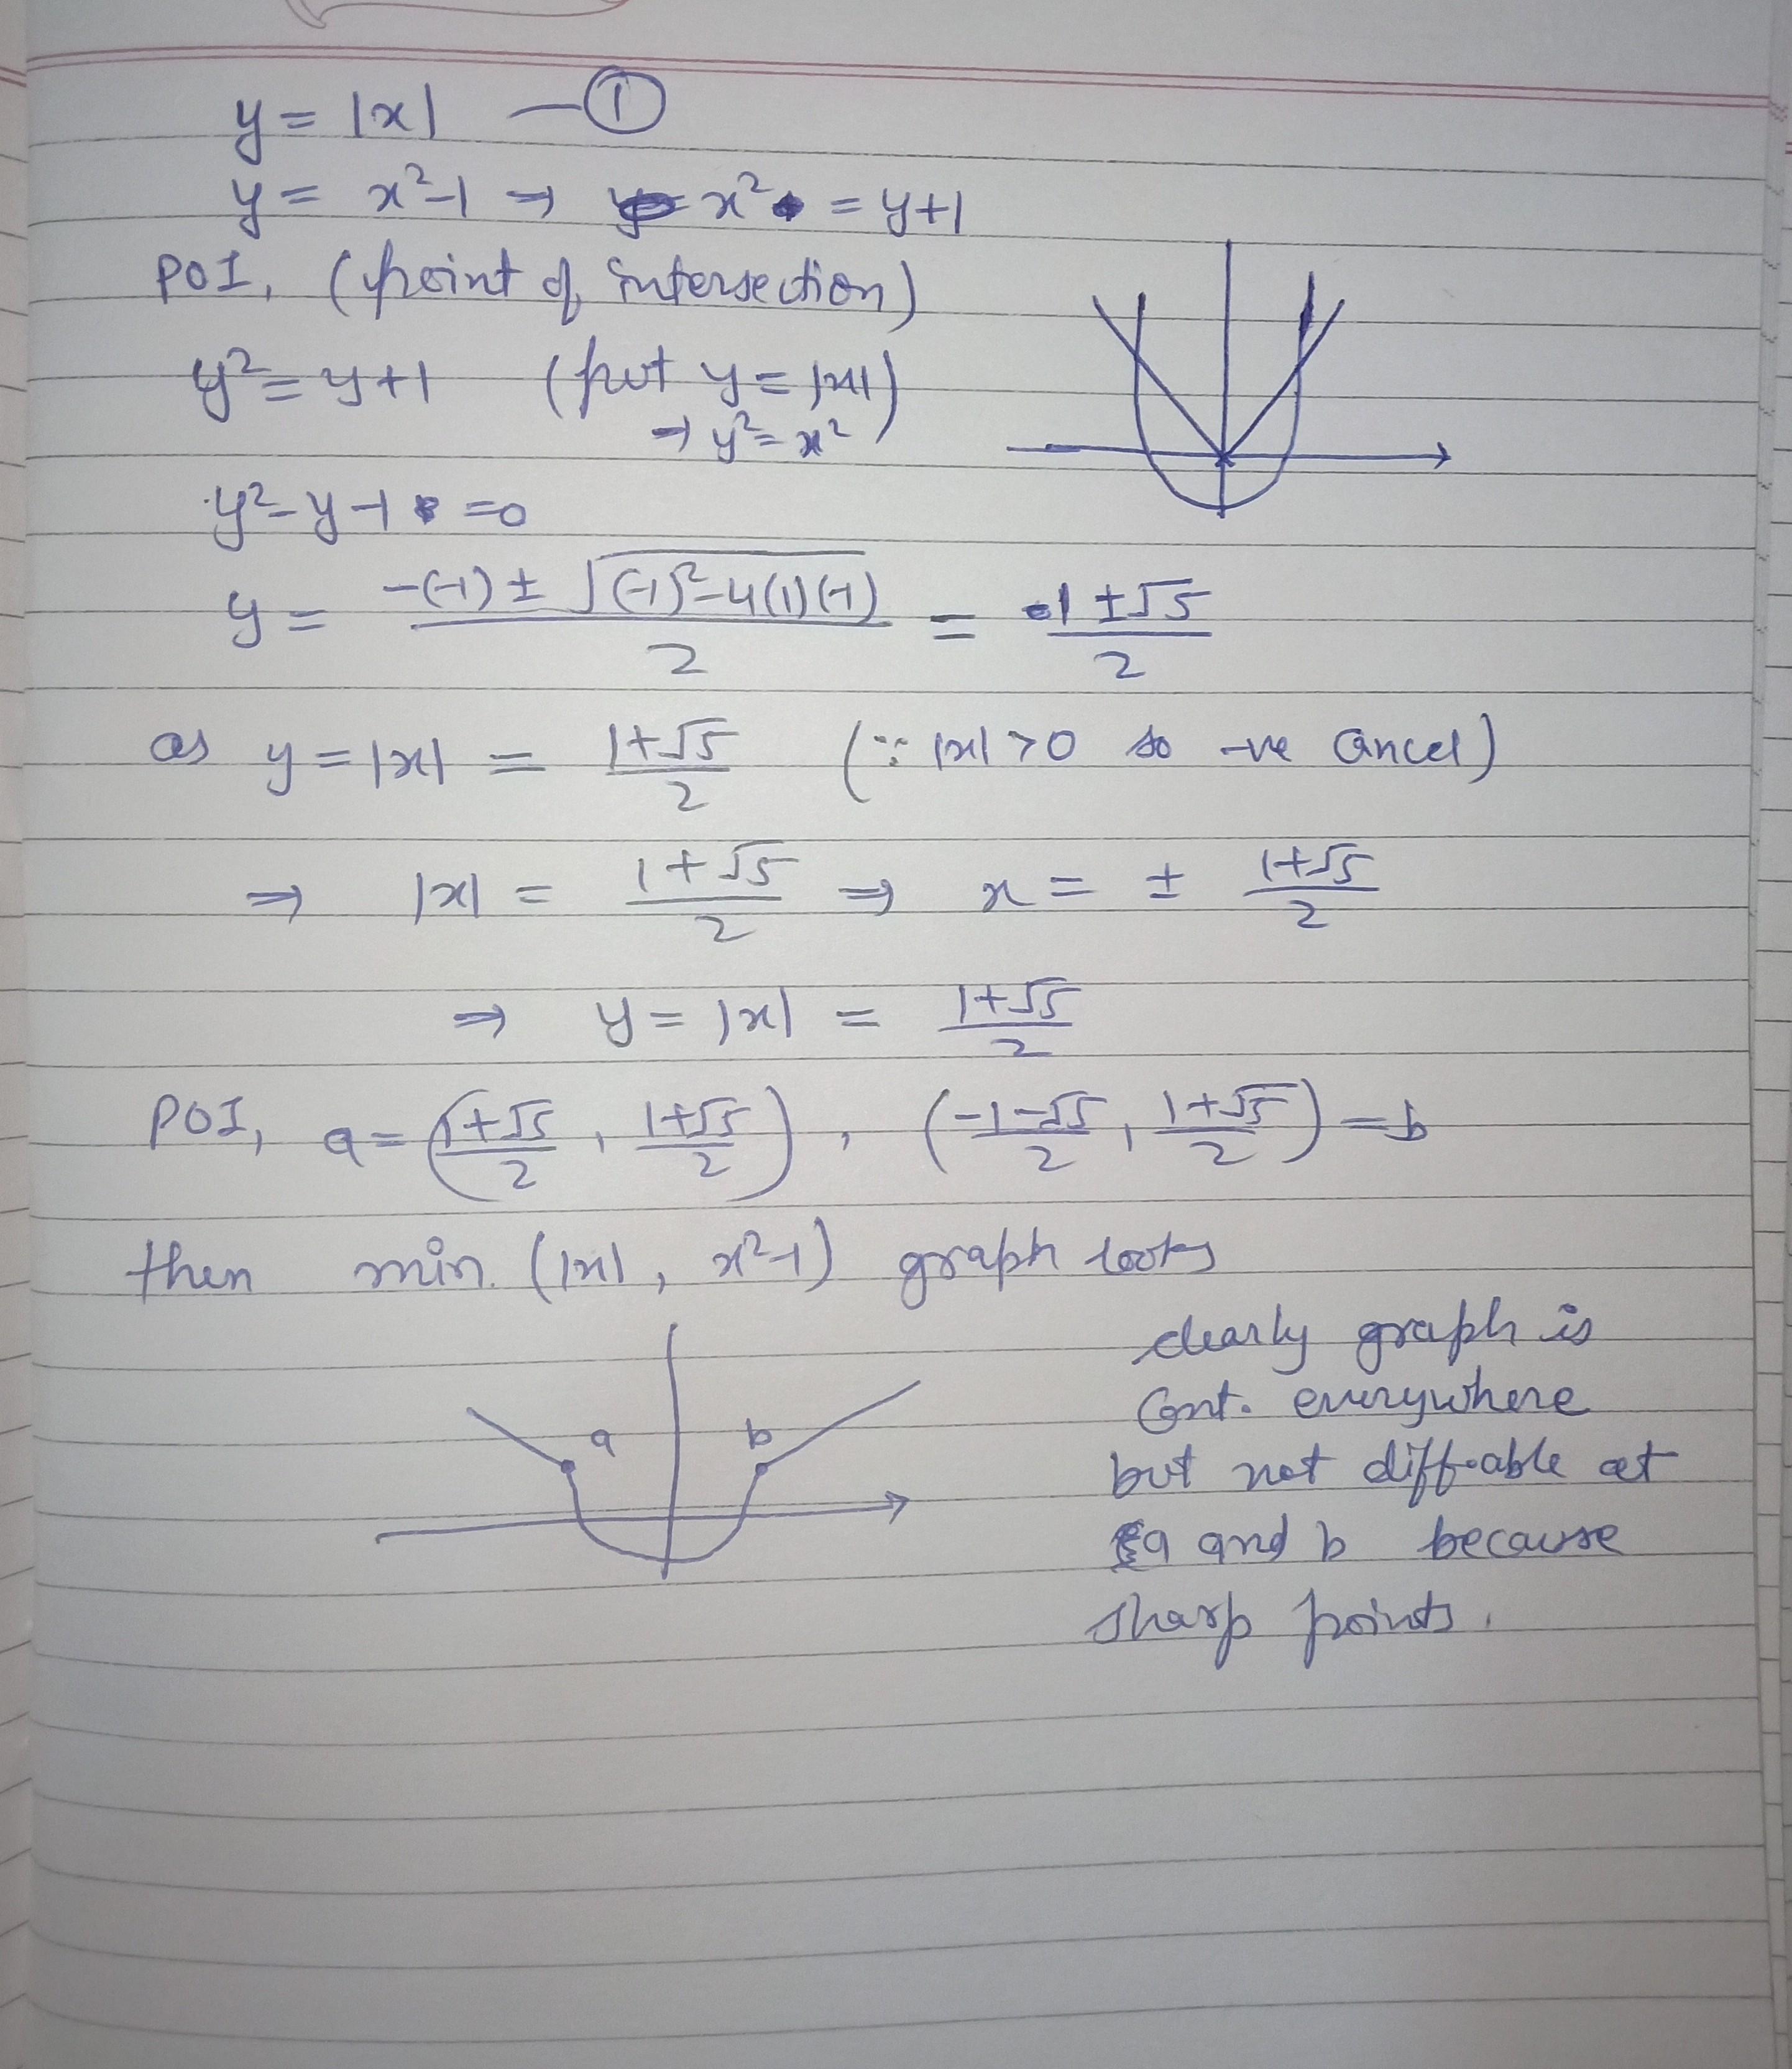 y = |x| —①
y = x²-1 → x² = y+1
POI, (point of intersection)
y² = y+1 (put y = |x|)
→ y² = x²
y²-y-1 =0
y = -(-1) ± √(-1)²-4(1)(-1) / 2 = 1 ±√5 / 2
as y = |x| = 1+√5 / 2 (∵ |x| >0 so -ve Cancel)
⇒ |x| = 1+√5 / 2 ⇒ x = ± 1+√5 / 2
⇒ y = |x| = 1+√5 / 2
POI, a = (1+√5 / 2 , 1+√5 / 2) , (-1-√5 / 2 , 1+√5 / 2) = b
then min. (|x|, x²-1) graph looks
a b
clearly graph is
Cont. everywhere
but not diff.able at
a and b because
sharp points.